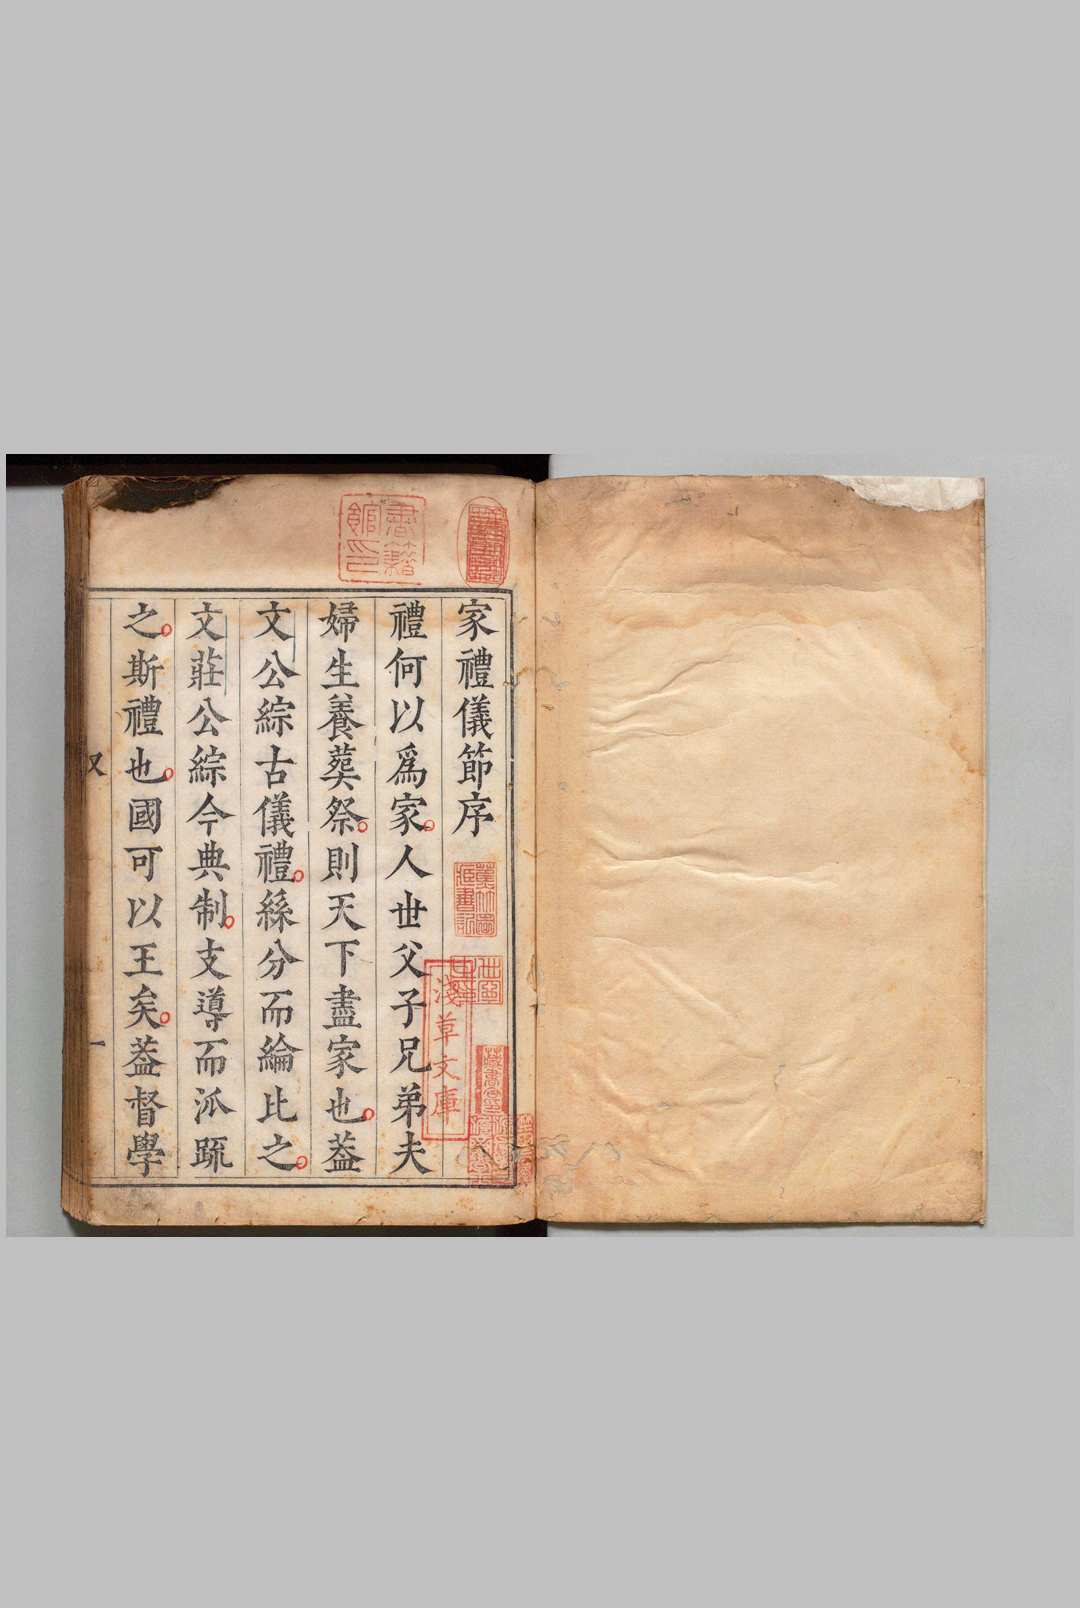 家禮儀節序
禮何以爲家人世父子兄弟夫
婦生養葬祭則天下盡家也葢
文公綜古儀禮絲分而綸比之
文莊公綜今典制支導而泒䟽
之斯禮也國可以王矣葢督學
又
一
書籍館印
淺草文庫